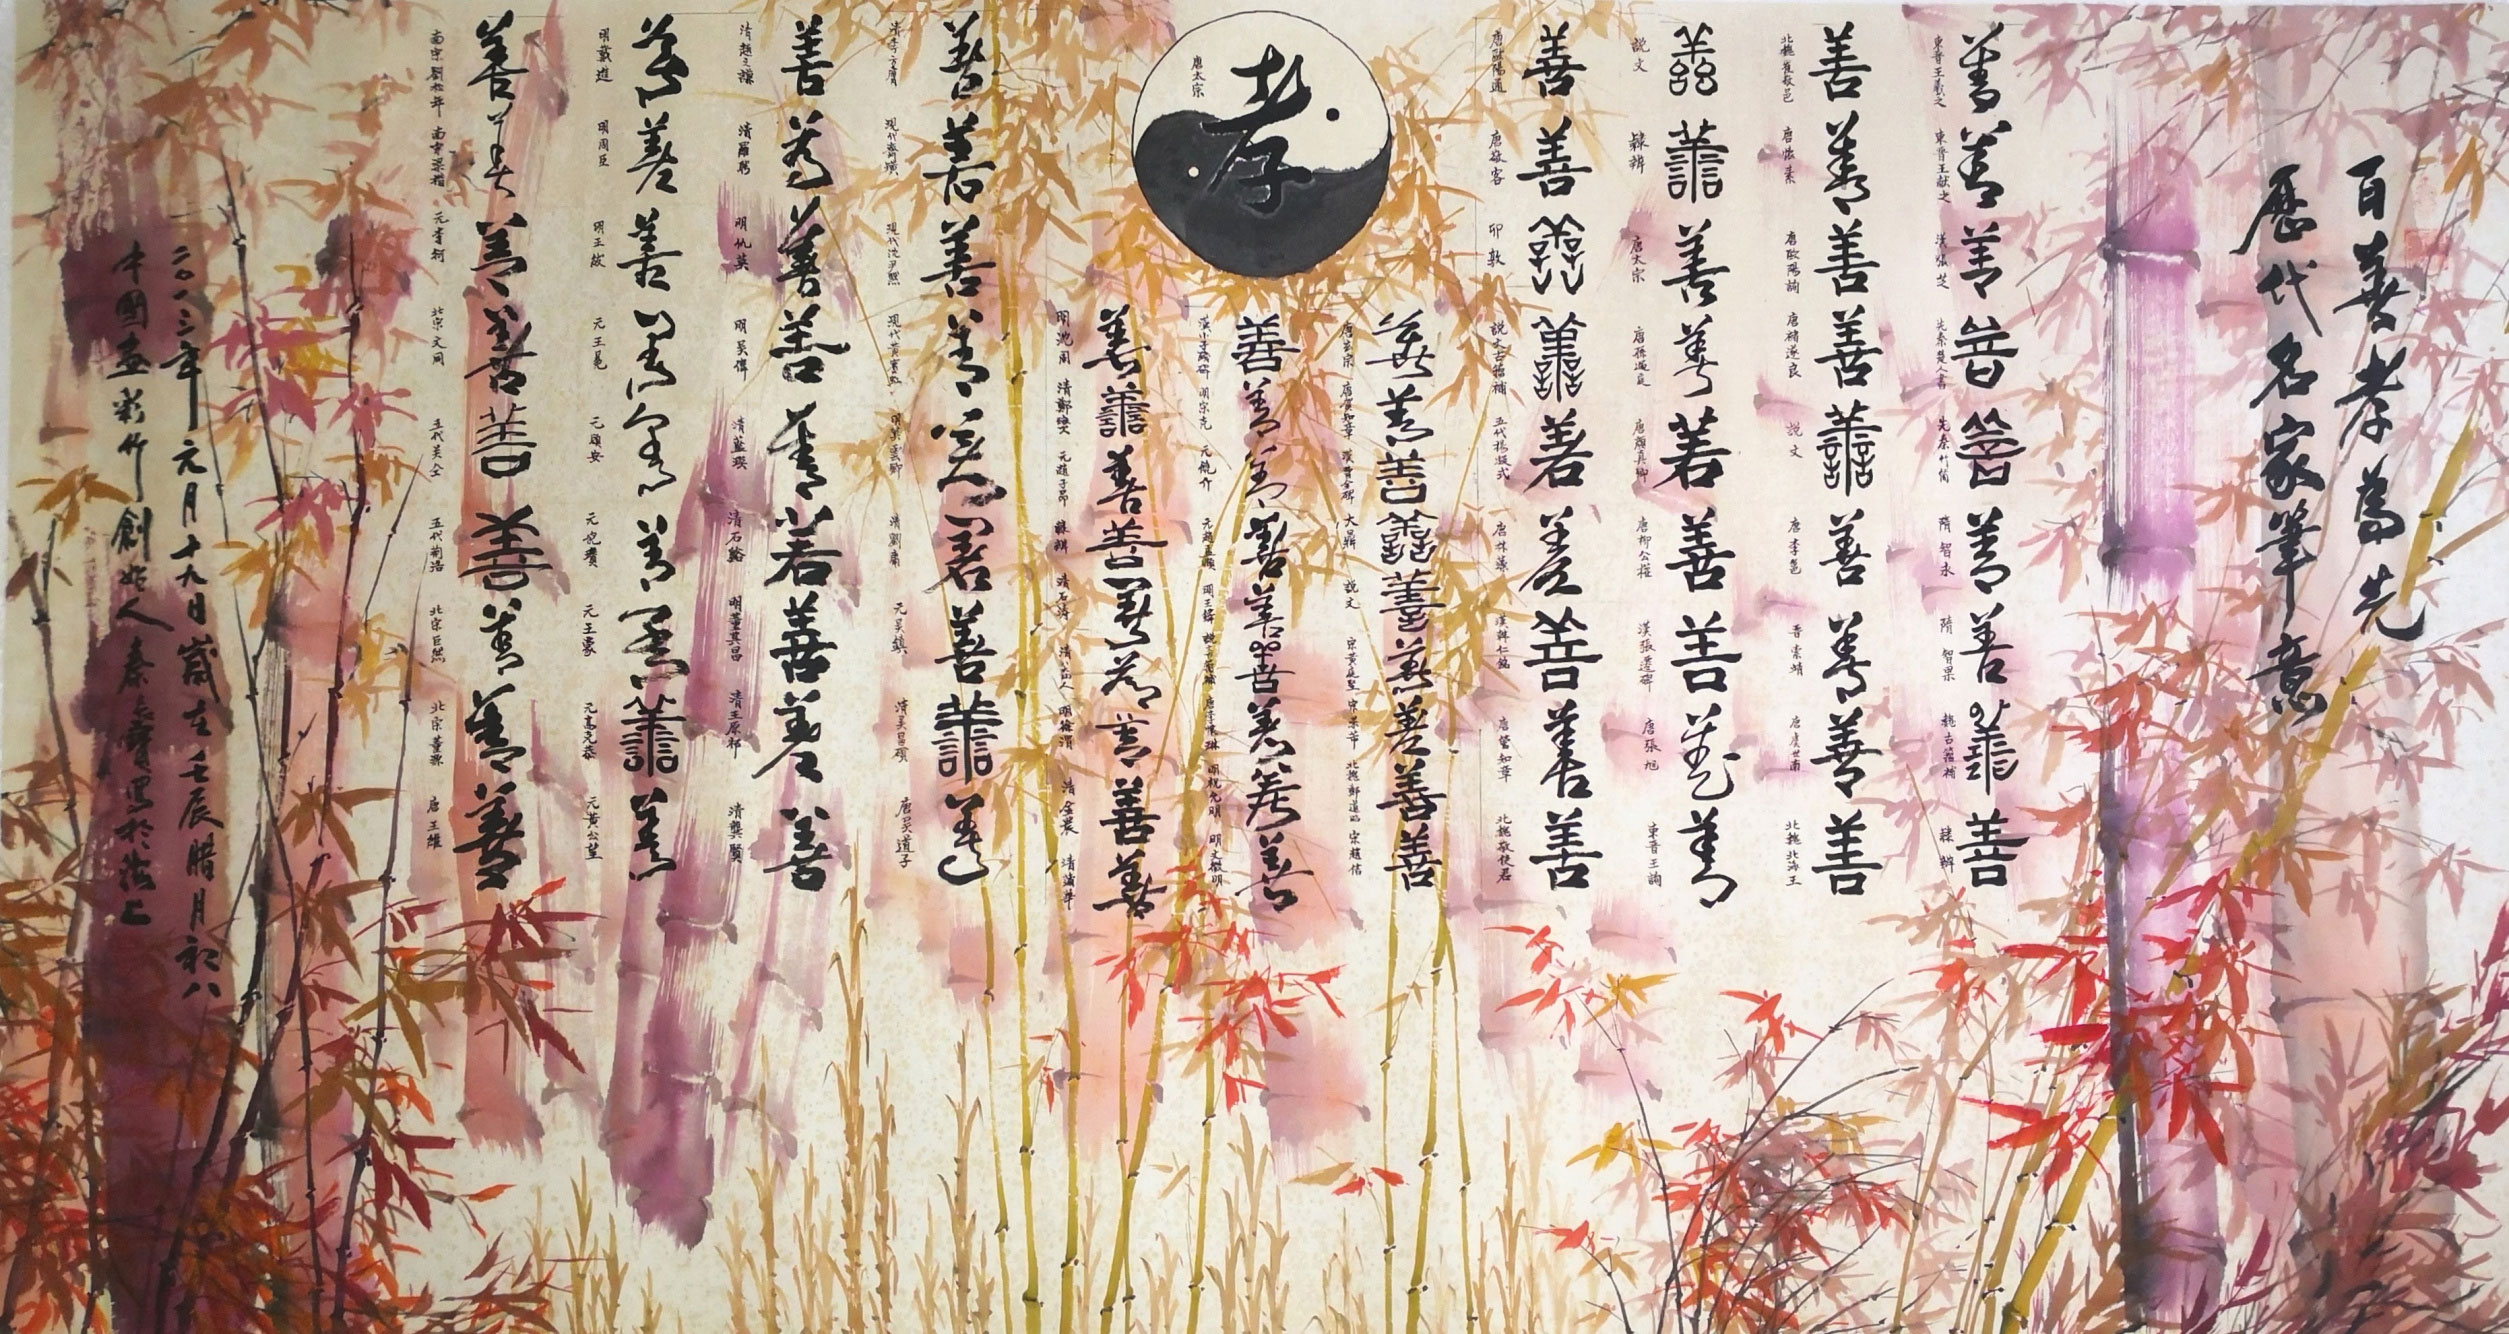 百善孝為先
歷代名家筆意
善善善善善善善善善
東晉王羲之 東晉王献之 漢張芝 先秦楚人書 先秦竹簡 隋智永 隋智果 魏古籀補 隸辨
善善善善善善善善善
北魏崔敬邕 唐懷素 唐歐陽詢 唐褚遂良 說文 唐李邕 晉索靖 唐虞世南 北魏北海王
善善善善善善善善善
說文 隸辨 唐太宗 唐孫過庭 唐顏真卿 唐柳公權 漢張遷碑 唐張旭 東晉王詢
善善善善善善善善善
唐歐陽通 唐敬客 卯敦 說文古籀補 五代楊凝式 唐林藻 漢韓仁銘 唐賀知章 北魏敬使君
孝
唐太宗
善善善善善善善善善
唐玄宗 唐賀知章 大鼎 說文 宋黄庭堅 宋米芾 北魏鄭道昭 宋趙佶
善善善善善善善善善
漢小子殘碑 明宋克 元饒介 元趙孟頫 明王鐸 說文古籀補 唐李懷琳 明祝允明 明文徵明
善善善善善善善善善
明沈周 清鄭燮 元趙子昂 隸辨 清石濤 清八大山人 明徐渭 清金農 清蒲華
善善善善善善善善善
清李方膺 現代齊璜 現代沈尹默 現代黃賓虹 明莫雲卿 清劉庸 元吴鎮 清吴昌碩 唐吴道子
善善善善善善善善善
清趙之謙 清羅聘 明仇英 明吴偉 清藍瑛 清石谿 明董其昌 清王原祁 清龔賢
善善善善善善善善善
明戴進 明周臣 明王紱 元王冕 元顾安 元倪瓚 元王蒙 元高克恭 元黄公望
善善善善善善善善善
南宋劉松年 南宋梁楷 元李衎 北宋文同 五代关仝 五代荊浩 北宋巨然 北宋董源 唐王維
二〇一三年元月十九日歲在壬辰臘月初八
中國畫彩竹創始人秦 寶寫於滬上